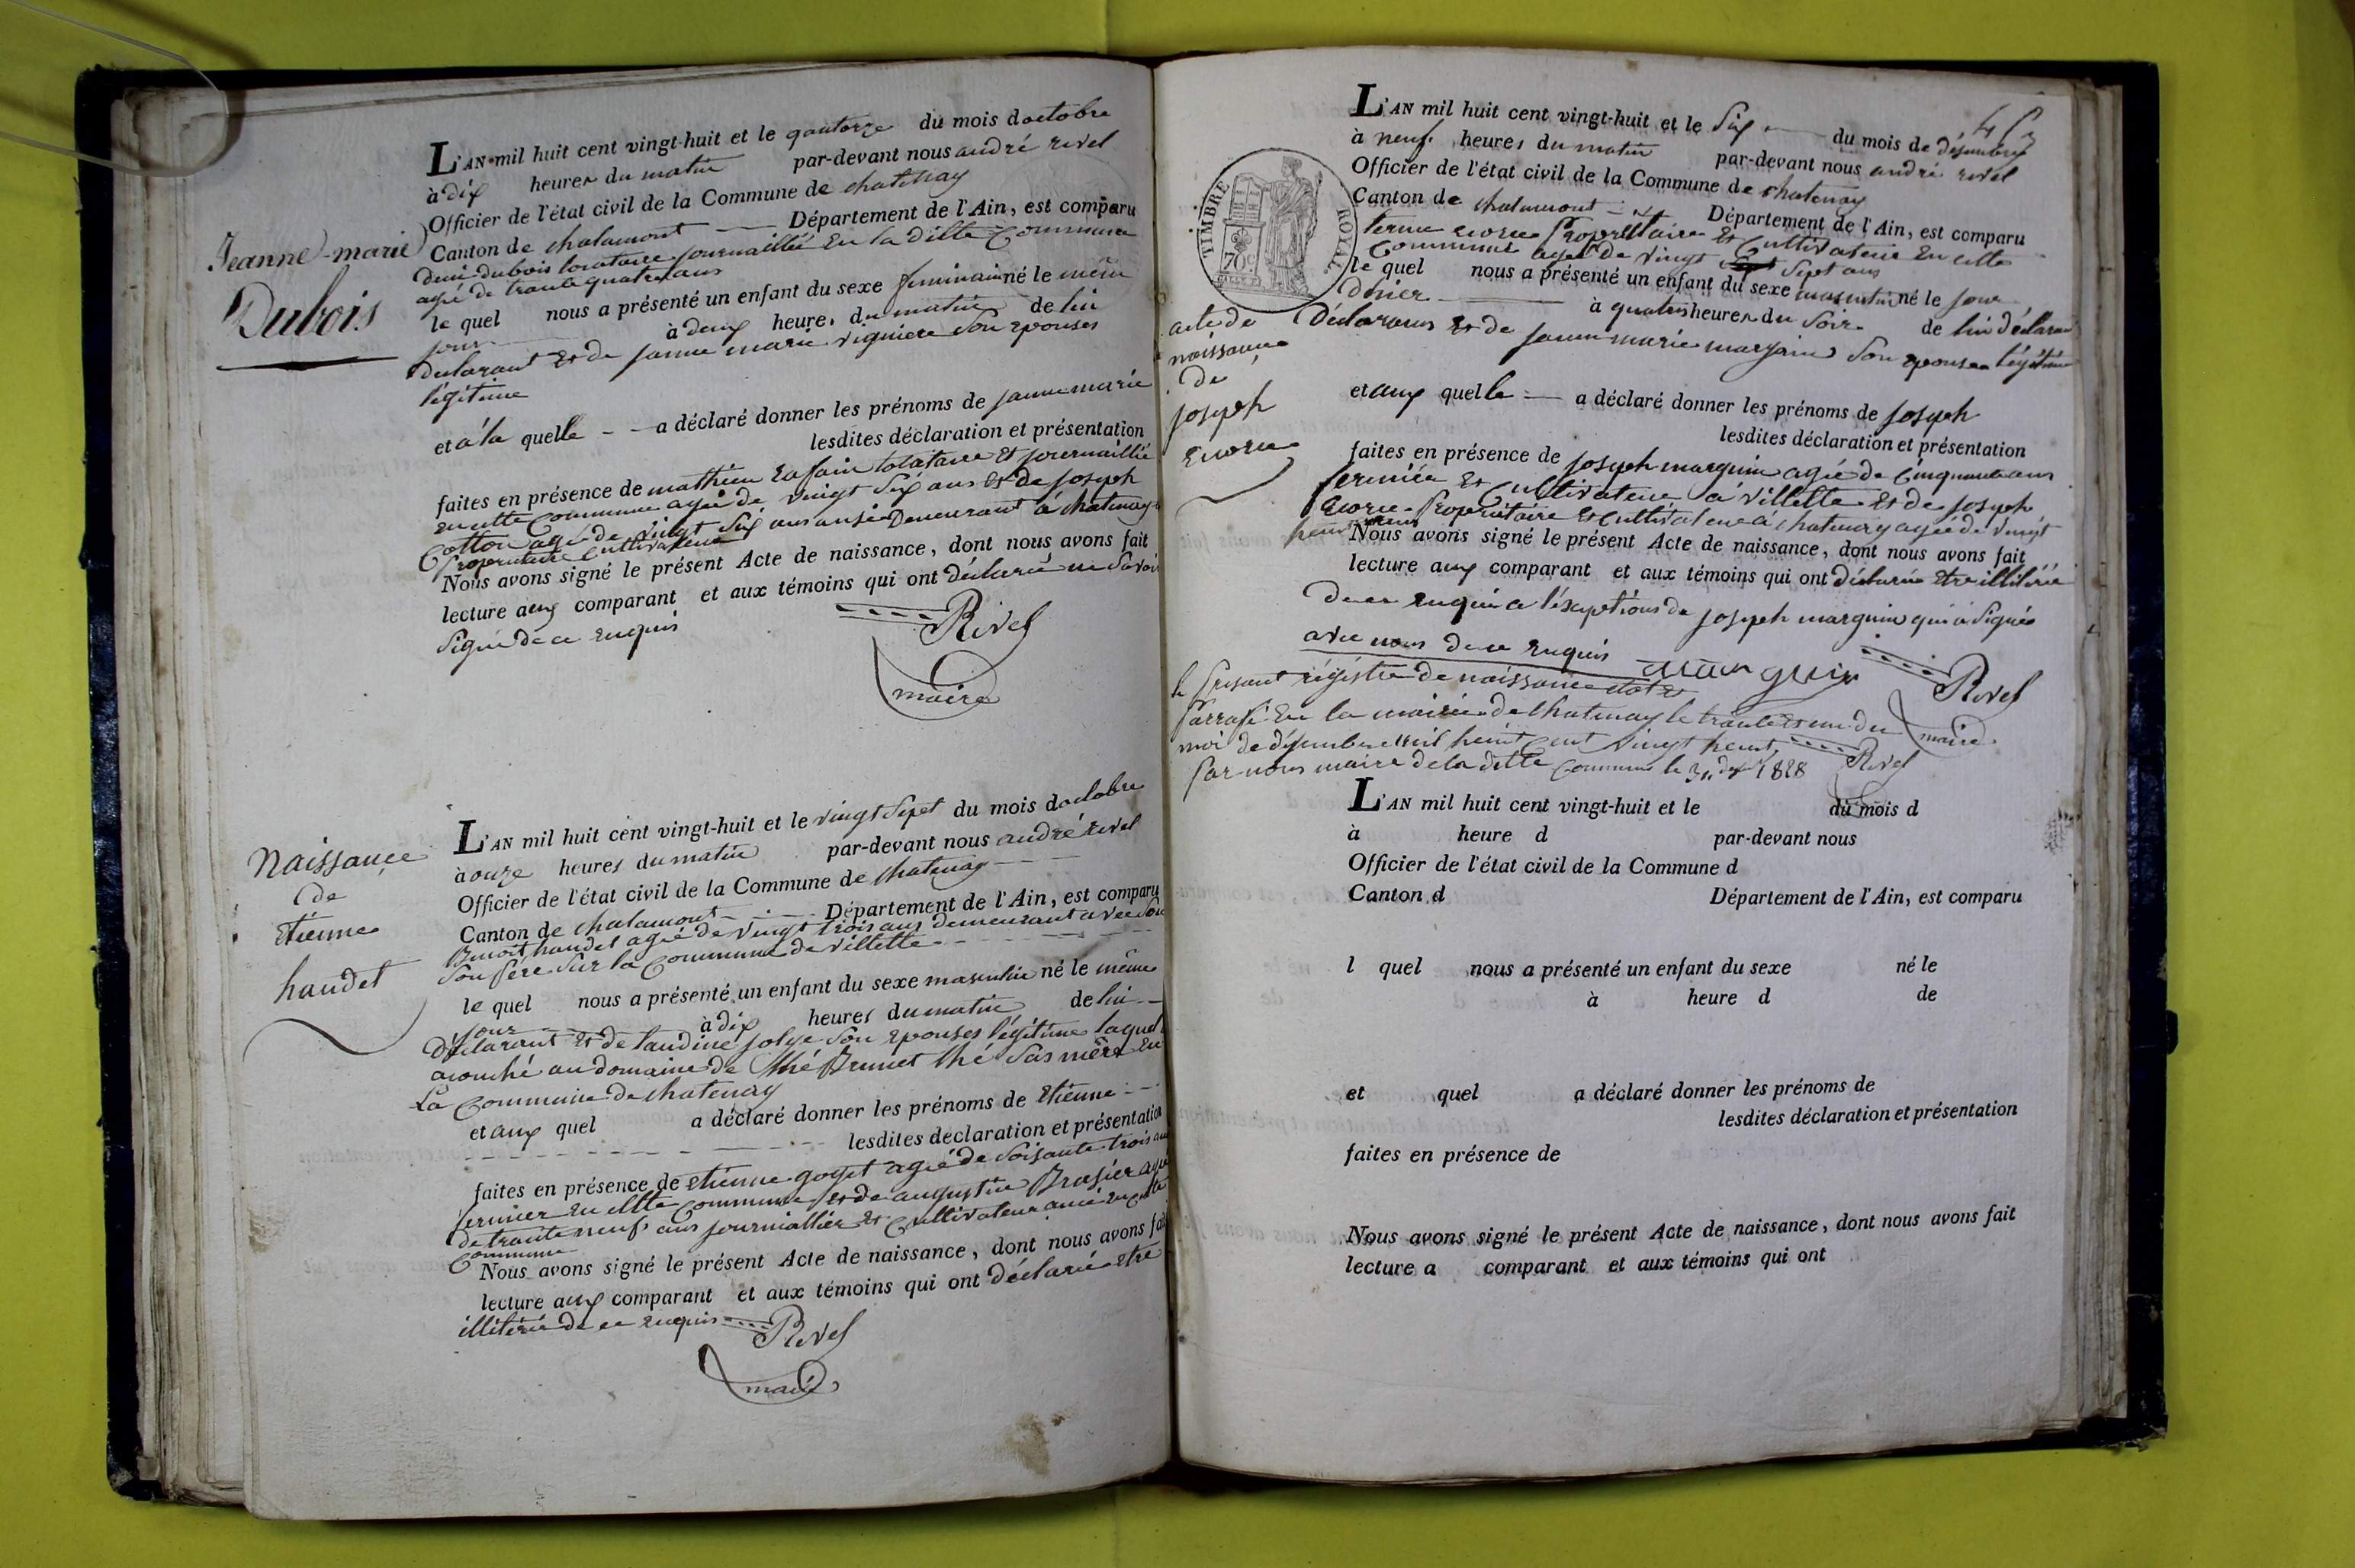 Jeanne-marie
Dubois
L'AN mil huit cent vingt-huit et le quatorze du mois doctobre
à dix heures du matin par-devant nous andré rivel
Officier de l'état civil de la Commune de chatenay
Canton de chalamont Département de l'Ain, est comparu
dubois locataire journaillié En la ditte Commune
agié de trante quatre ans
le quel nous a présenté un enfant du sexe feminain né le même
jour à deux heures du matin de lui
declarant Et de janne marie viguiere Son epouses
légitime
et à la quelle a déclaré donner les prénoms de janne marie
lesdites déclaration et présentation
faites en présence de mathieu locataire Et journaillié
en cette Commune agié de vingt Six ans Et de joseph
Cotton agié de vingt Six ans ausi Demeurant à chatenay
Propriétaire Cultivateur
Nous avons signé le présent Acte de naissance, dont nous avons fait
lecture aux comparant et aux témoins qui ont déclarié ne Savoir
Signié de ce Enquis
Rivel
maire
Naissance
de
Etienne
handet
L'AN mil huit cent vingt-huit et le vingt Sept du mois doctobre
à onze heures du matin par-devant nous andré rivel
Officier de l'état civil de la Commune de chatenay
Canton de chalamont Département de l'Ain, est comparu
Benoit handet agié de vingt trois ans demeurant avec Son
Son Père Sur la Commune de villette
le quel nous a présenté un enfant du sexe masculin né le même
jour à dix heures du matin de lui
Déclarant Et de Son Epouses légitime laquel
acouché au domaine de Brunet Sas mère En
La Commune de chatenay
et aux quel a déclaré donner les prénoms de Etienne
lesdites déclaration et présentation
faites en présence de Etienne goyet agié de Soisante trois ans
fermier En cette Commune Et de augustin Brasier agié
de trante neuf ans journiallier Et Cultivateur en Cette
Commune
Nous avons signé le présent Acte de naissance, dont nous avons fait
lecture aux comparant et aux témoins qui ont déclarié Etre
illitérié de ce Enquis
Rivel
maire
TIMBRE ROYAL
70c
L'AN mil huit cent vingt-huit et le Six du mois de désembre
à neuf heures du matin par-devant nous andré rivel
Officier de l'état civil de la Commune de chatenay
Canton de chalamont Département de l'Ain, est comparu
Propriétaire Et Cultivateur En cette
Commune agié de vingt Sept ans
le quel nous a présenté un enfant du sexe masculin né le jour
à quatres heures du Soir de lui déclarant
Déclarans Et de janne marie Son epousea légitime
acte de
naissance
de
joseph
Ecorce
et aux quelle a déclaré donner les prénoms de joseph
lesdites déclaration et présentation
faites en présence de joseph marguin agié de Cinquante ans
fermiée Et Cultivateur à villette Et de joseph
Ecorce Propriétaire Et Cultivateur à chatenay agié de vingt
Nous avons signé le présent Acte de naissance, dont nous avons fait
lecture aux comparant et aux témoins qui ont déclarié Etre illitérié
de ce Enquis a l'éxseptions de joseph marguin qui à Signié
avec nous de ce Enquis
marguin
Rivel
maire
le présant régistre de naissance
En la mairie de Chatenay le trante Et un du
moi de désembre mil huit Cent vingt huit
Par nous maire de la ditte Commune le 31 1828
Rivel
L'AN mil huit cent vingt-huit et le du mois d
à heure d par-devant nous
Officier de l'état civil de la Commune d
Canton d Département de l'Ain, est comparu
l quel nous a présenté un enfant du sexe né le
à heure d de
et quel a déclaré donner les prénoms de
lesdites déclaration et présentation
faites en présence de
Nous avons signé le présent Acte de naissance, dont nous avons fait
lecture a comparant et aux témoins qui ont